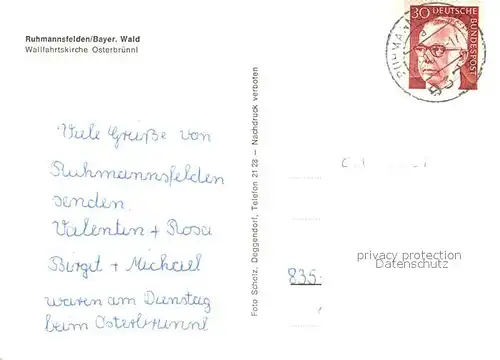 Ruhmannsfelden/Bayer. Wald
Wallfahrtskirche Osterbrünnl
30 DEUTSCHE
BUNDESPOST
Viele Grüße von
Ruhmannsfelden
senden.
Valentin + Rosa
Birgit + Michael
waren am Dienstag
beim Osterbrünnl
Foto Scholz, Deggendorf, Telefon 21 28 — Nachdruck verboten
privacy protection
Datenschutz
835